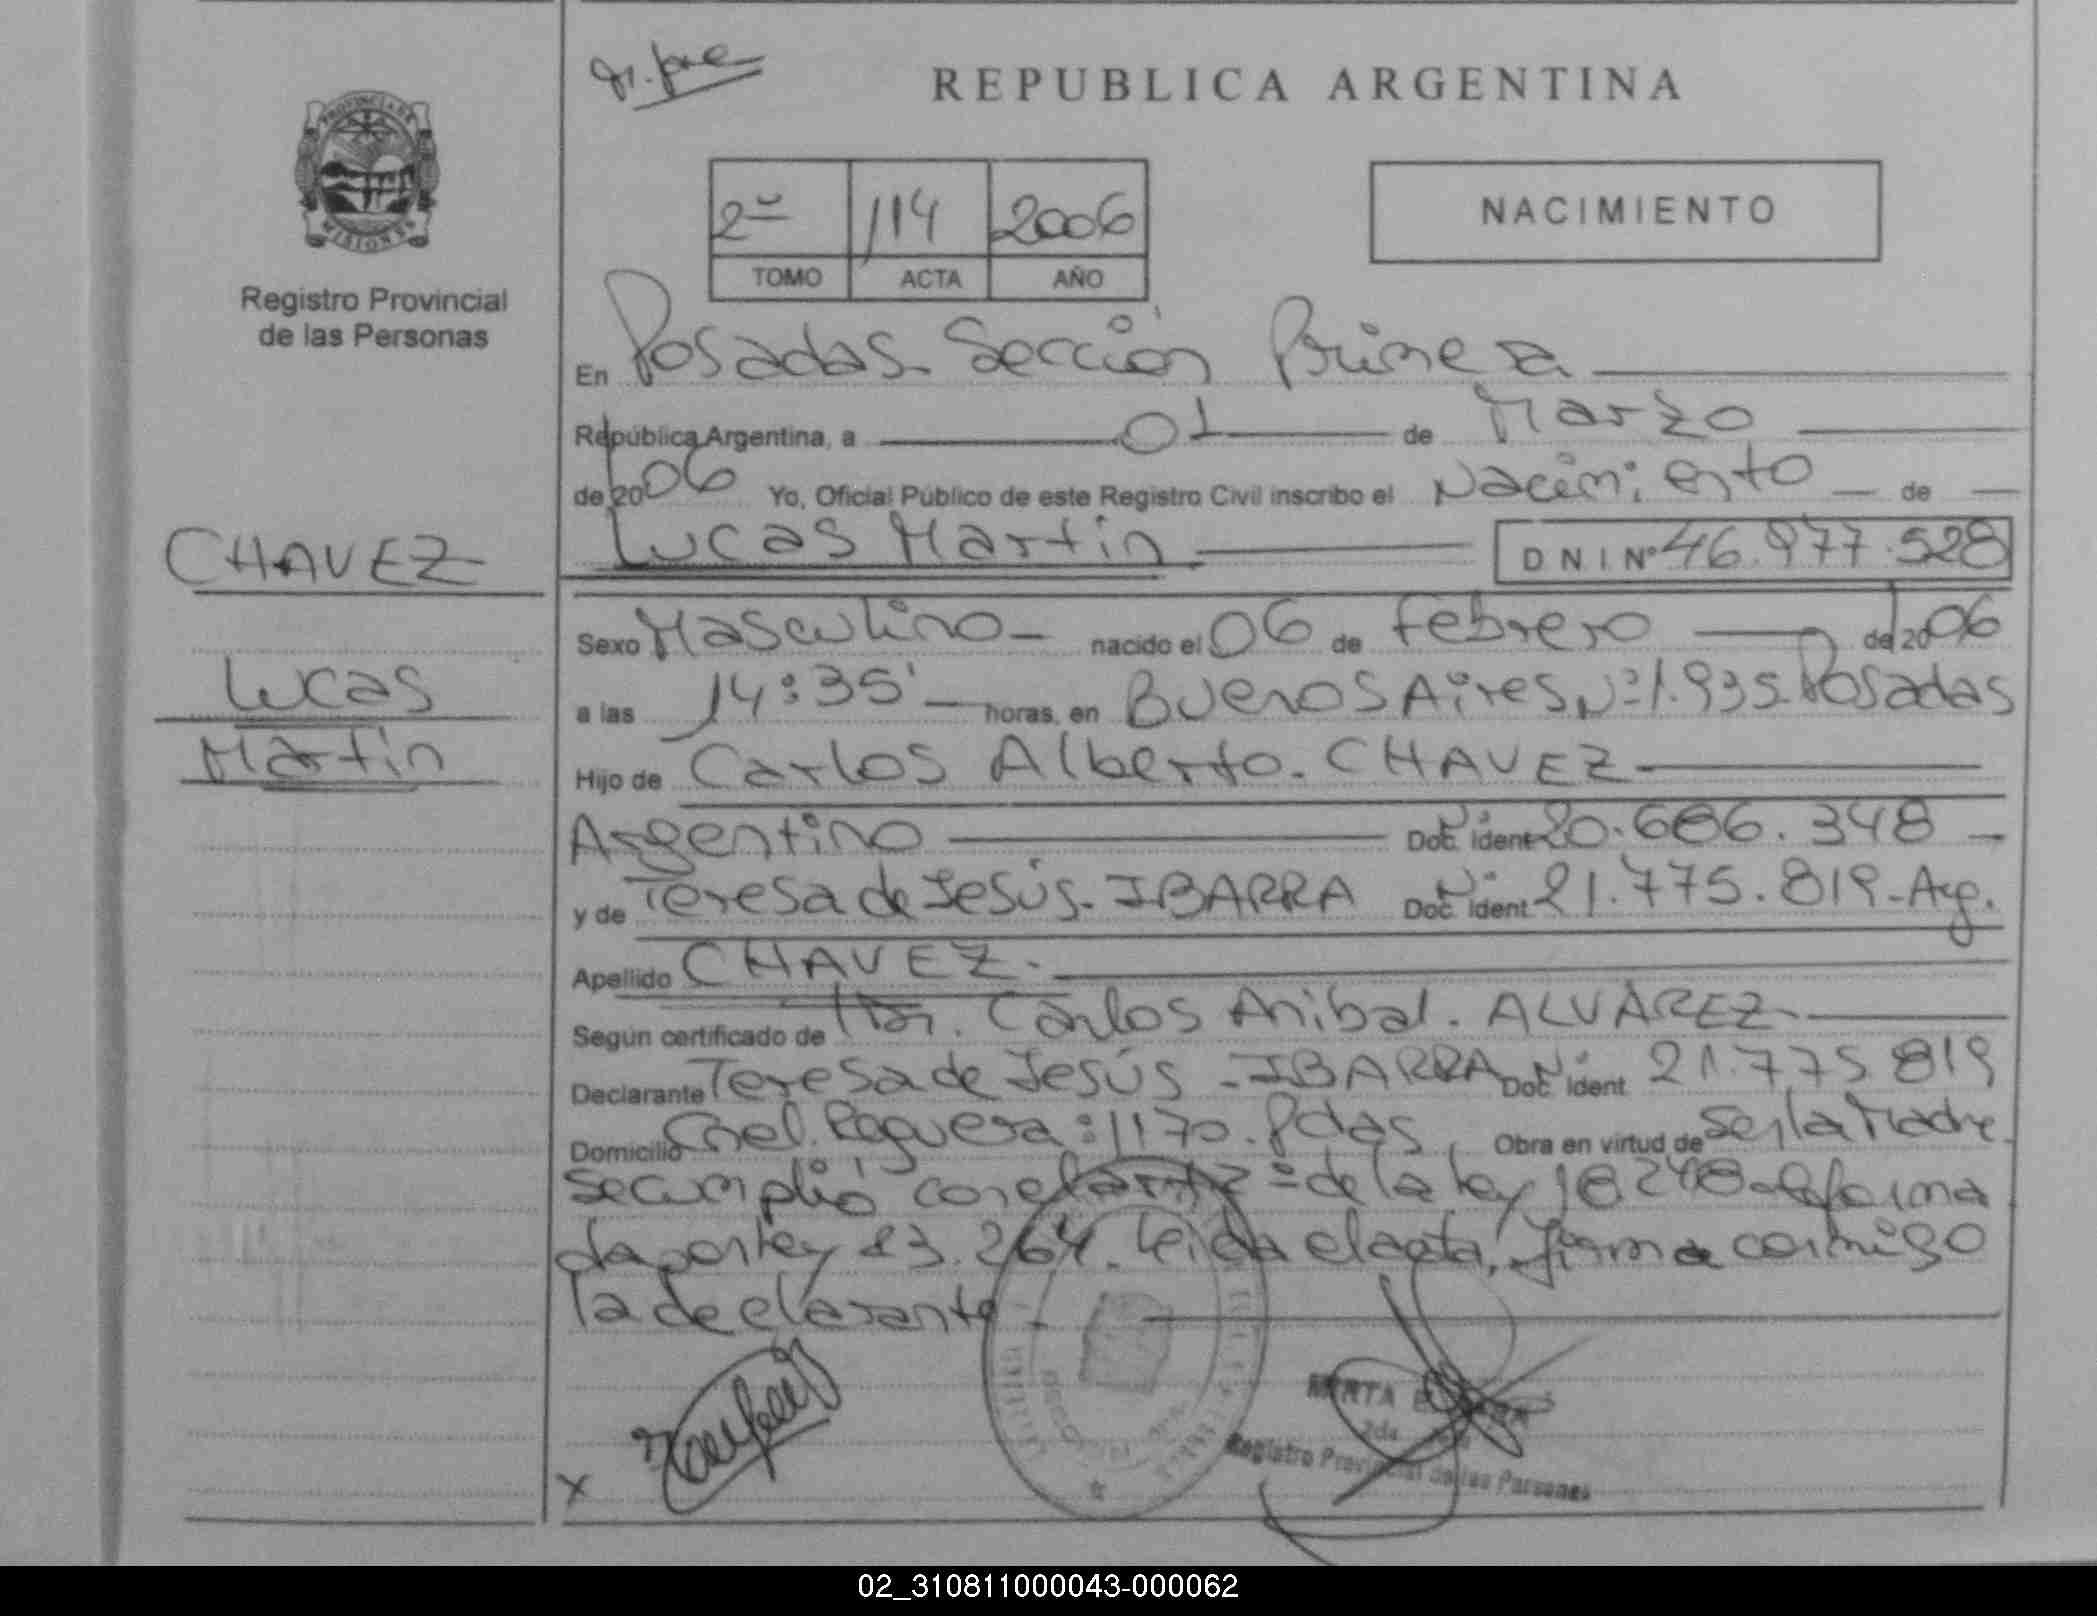 REPUBLICA ARGENTINA
PROVINCIA DE
MISIONES
Registro Provincial
de las Personas
2º 114 2006
TOMO ACTA AÑO
NACIMIENTO
En Posadas. Sección Primera
República Argentina, a 01 de Marzo
de 2006 Yo, Oficial Público de este Registro Civil inscribo el Nacimiento de
Lucas Martín D N.I. Nº 46.977.528
CHAVEZ
Lucas
Martín
Sexo Masculino nacido el 06 de Febrero de 2006
a las 14:35' horas, en Buenos Aires Nº 1.935 Posadas
Hijo de Carlos Alberto. CHAVEZ
Argentino Doc. ident Nº 20.686.348
y de Teresa de Jesús. IBARRA Doc. ident Nº 21.775.819 - Arg.
Apellido CHAVEZ.
Según certificado de Carlos Anibal. ALVAREZ
Declarante Teresa de Jesús - IBARRA Doc. ident Nº 21.775.819
Domicilio Cnel. Reguera: 1170. Pdas. Obra en virtud de ser la Madre
se cumplió con el art 2º de la ley 18248 reforma
da por ley 23.264. Leida el acta, firma conmigo
la declarante
X
MIRTA
Registro Provincial de las Personas
02_310811000043-000062